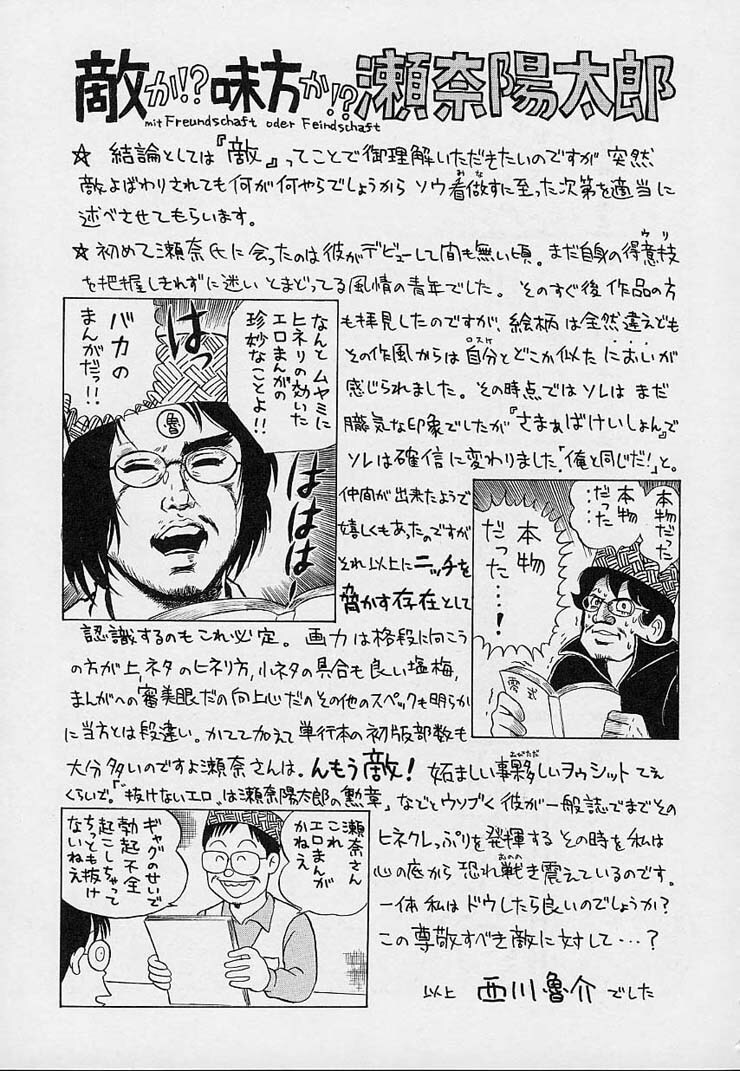 敵か!?味方か!?瀬奈陽太郎
mit Freundschaft oder Feindschaft
☆ 結論としては『敵』ってことで御理解いただきたいのですが 突然
敵よばわりされても何が何やらでしょうから ソウ看做すに至った次第を適当に
みな
述べさせてもらいます。
☆ 初めて瀬奈氏に会ったのは彼がデビューして間も無い頃。まだ自身の得意技
ウリ
を把握しきれずに迷い とまどってる風情の青年でした。そのすぐ後 作品の方
も拝見したのですが、絵柄は全然違えども
その作風からは自分とどこか似た においが
ロスケ
感じられました。その時点では ソレは まだ
朧気な印象でしたが『さまぁばけいしょん』で
ソレは確信に変わりました「俺と同じだ!」と。
仲間が出来たようで
嬉しくもあったのですが
それ以上に ニッチを
脅かす存在として
認識するのもこれ必定。画力は格段に向こう
の方が上、ネタのヒネリ方、小ネタの具合も良い塩梅、
まんがへの審美眼だの向上心だのその他のスペックも明らか
に当方とは段違い。かてて加えて単行本の初版部数も
大分多いのですよ瀬奈さんは。んもう敵! 妬ましい事夥しいヲゥシットてえ
おびただ
くらいで。「"抜けないエロ"は瀬奈陽太郎の勲章」などとウソぶく彼が一般誌でまでその
ヒネクレっぷりを発揮する その時を私は
心の底から恐れ戦き震えているのです。
おのの
一体 私は ドウしたら良いのでしょうか?
この尊敬すべき敵に対して・・・?
以上 西川魯介 でした
なんと ムヤミに
ヒネリの効いた
エロまんがの
珍妙なことよ!!
はっ
バカの
まんがだっ!!
ははは
魯
本物だった
・・・
本物
だった
・・・
本物
だった・・・!
零式
瀬奈さん
これ
エロまんが
かねえ
ギャグのせいで
勃起不全
起こしちゃって
ちっとも抜け
ないねえ